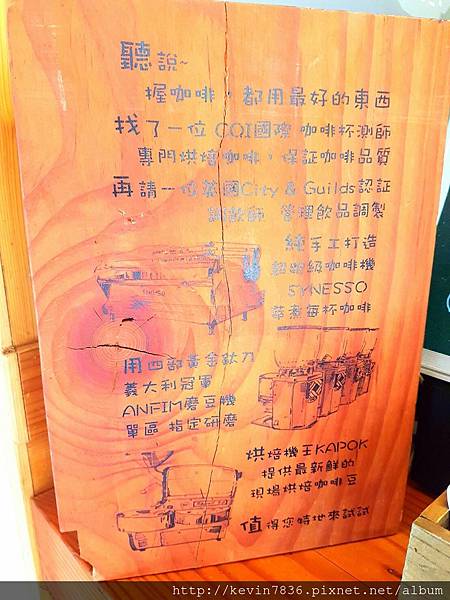 聽說~
握咖啡，都用最好的東西
找了一位 CQI國際 咖啡杯測師
專門烘焙咖啡，保証咖啡品質
再請一位英國City & Guilds認証
調飲師 管理飲品調製
純手工打造
超跑級咖啡機
SYNESSO
萃煮每杯咖啡
用四部黃金鈦刀
義大利冠軍
ANFIM磨豆機
單區 指定研磨
烘焙機王KAPOK
提供最新鮮的
現場烘焙咖啡豆
值得您特地來試試
http://kevin7836.pixnet.net/album